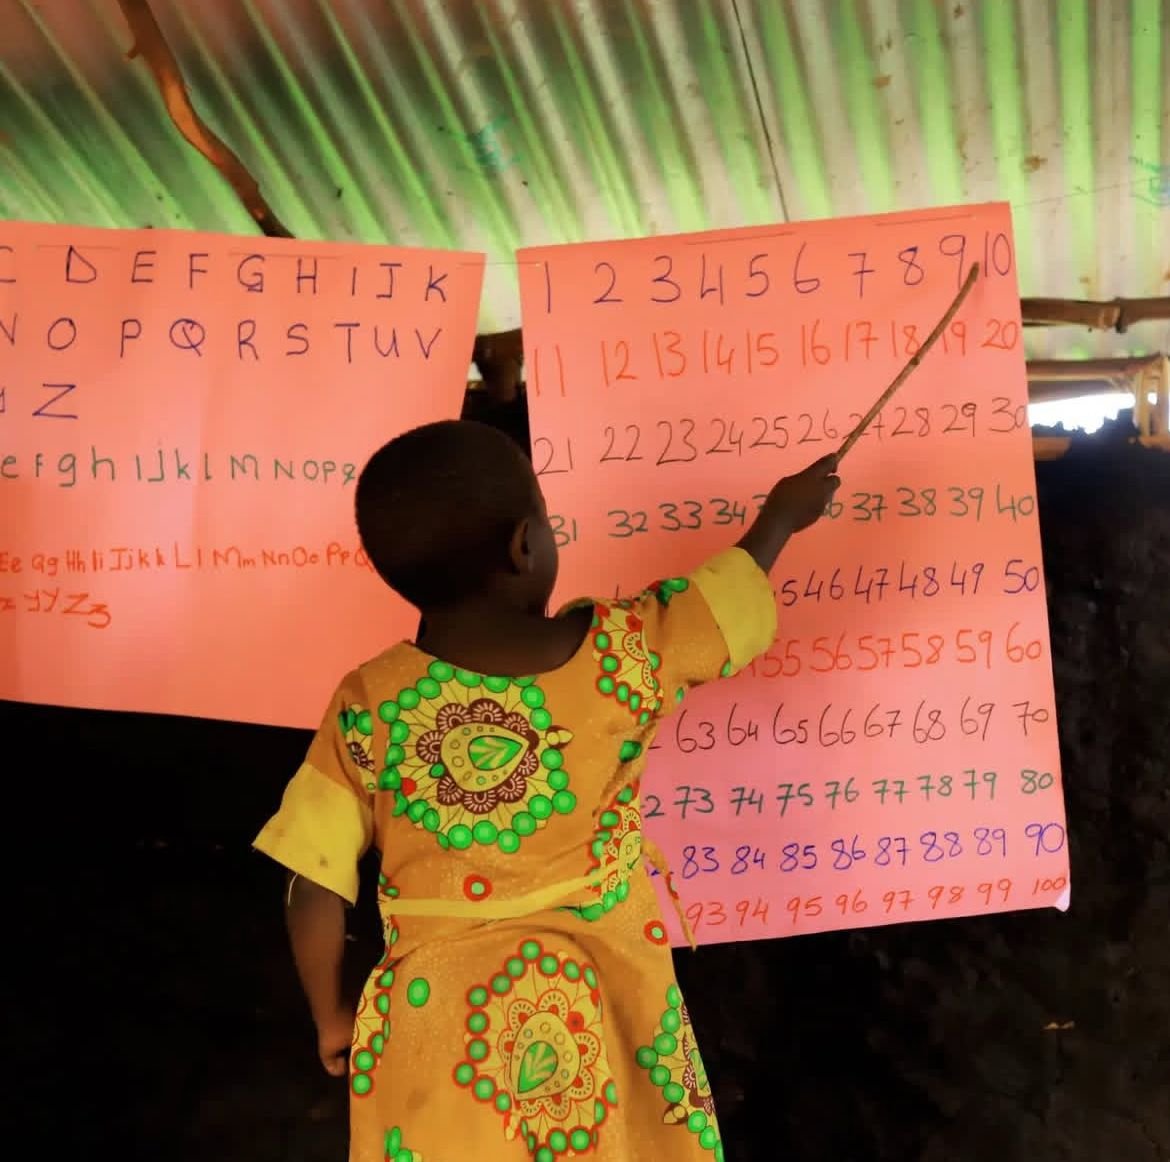 C D E F G H I J K
N O P Q R S T U V
Z
e F g h I J k l M N O P q
Ee Gg Hh Ii Jj Kk L l Mm Nn Oo Pp
yY Zz
1 2 3 4 5 6 7 8 9 10
11 12 13 14 15 16 17 18 19 20
21 22 23 24 25 26 27 28 29 30
31 32 33 34 37 38 39 40
46 47 48 49 50
55 56 57 58 59 60
63 64 65 66 67 68 69 70
73 74 75 76 77 78 79 80
83 84 85 86 87 88 89 90
93 94 95 96 97 98 99 100